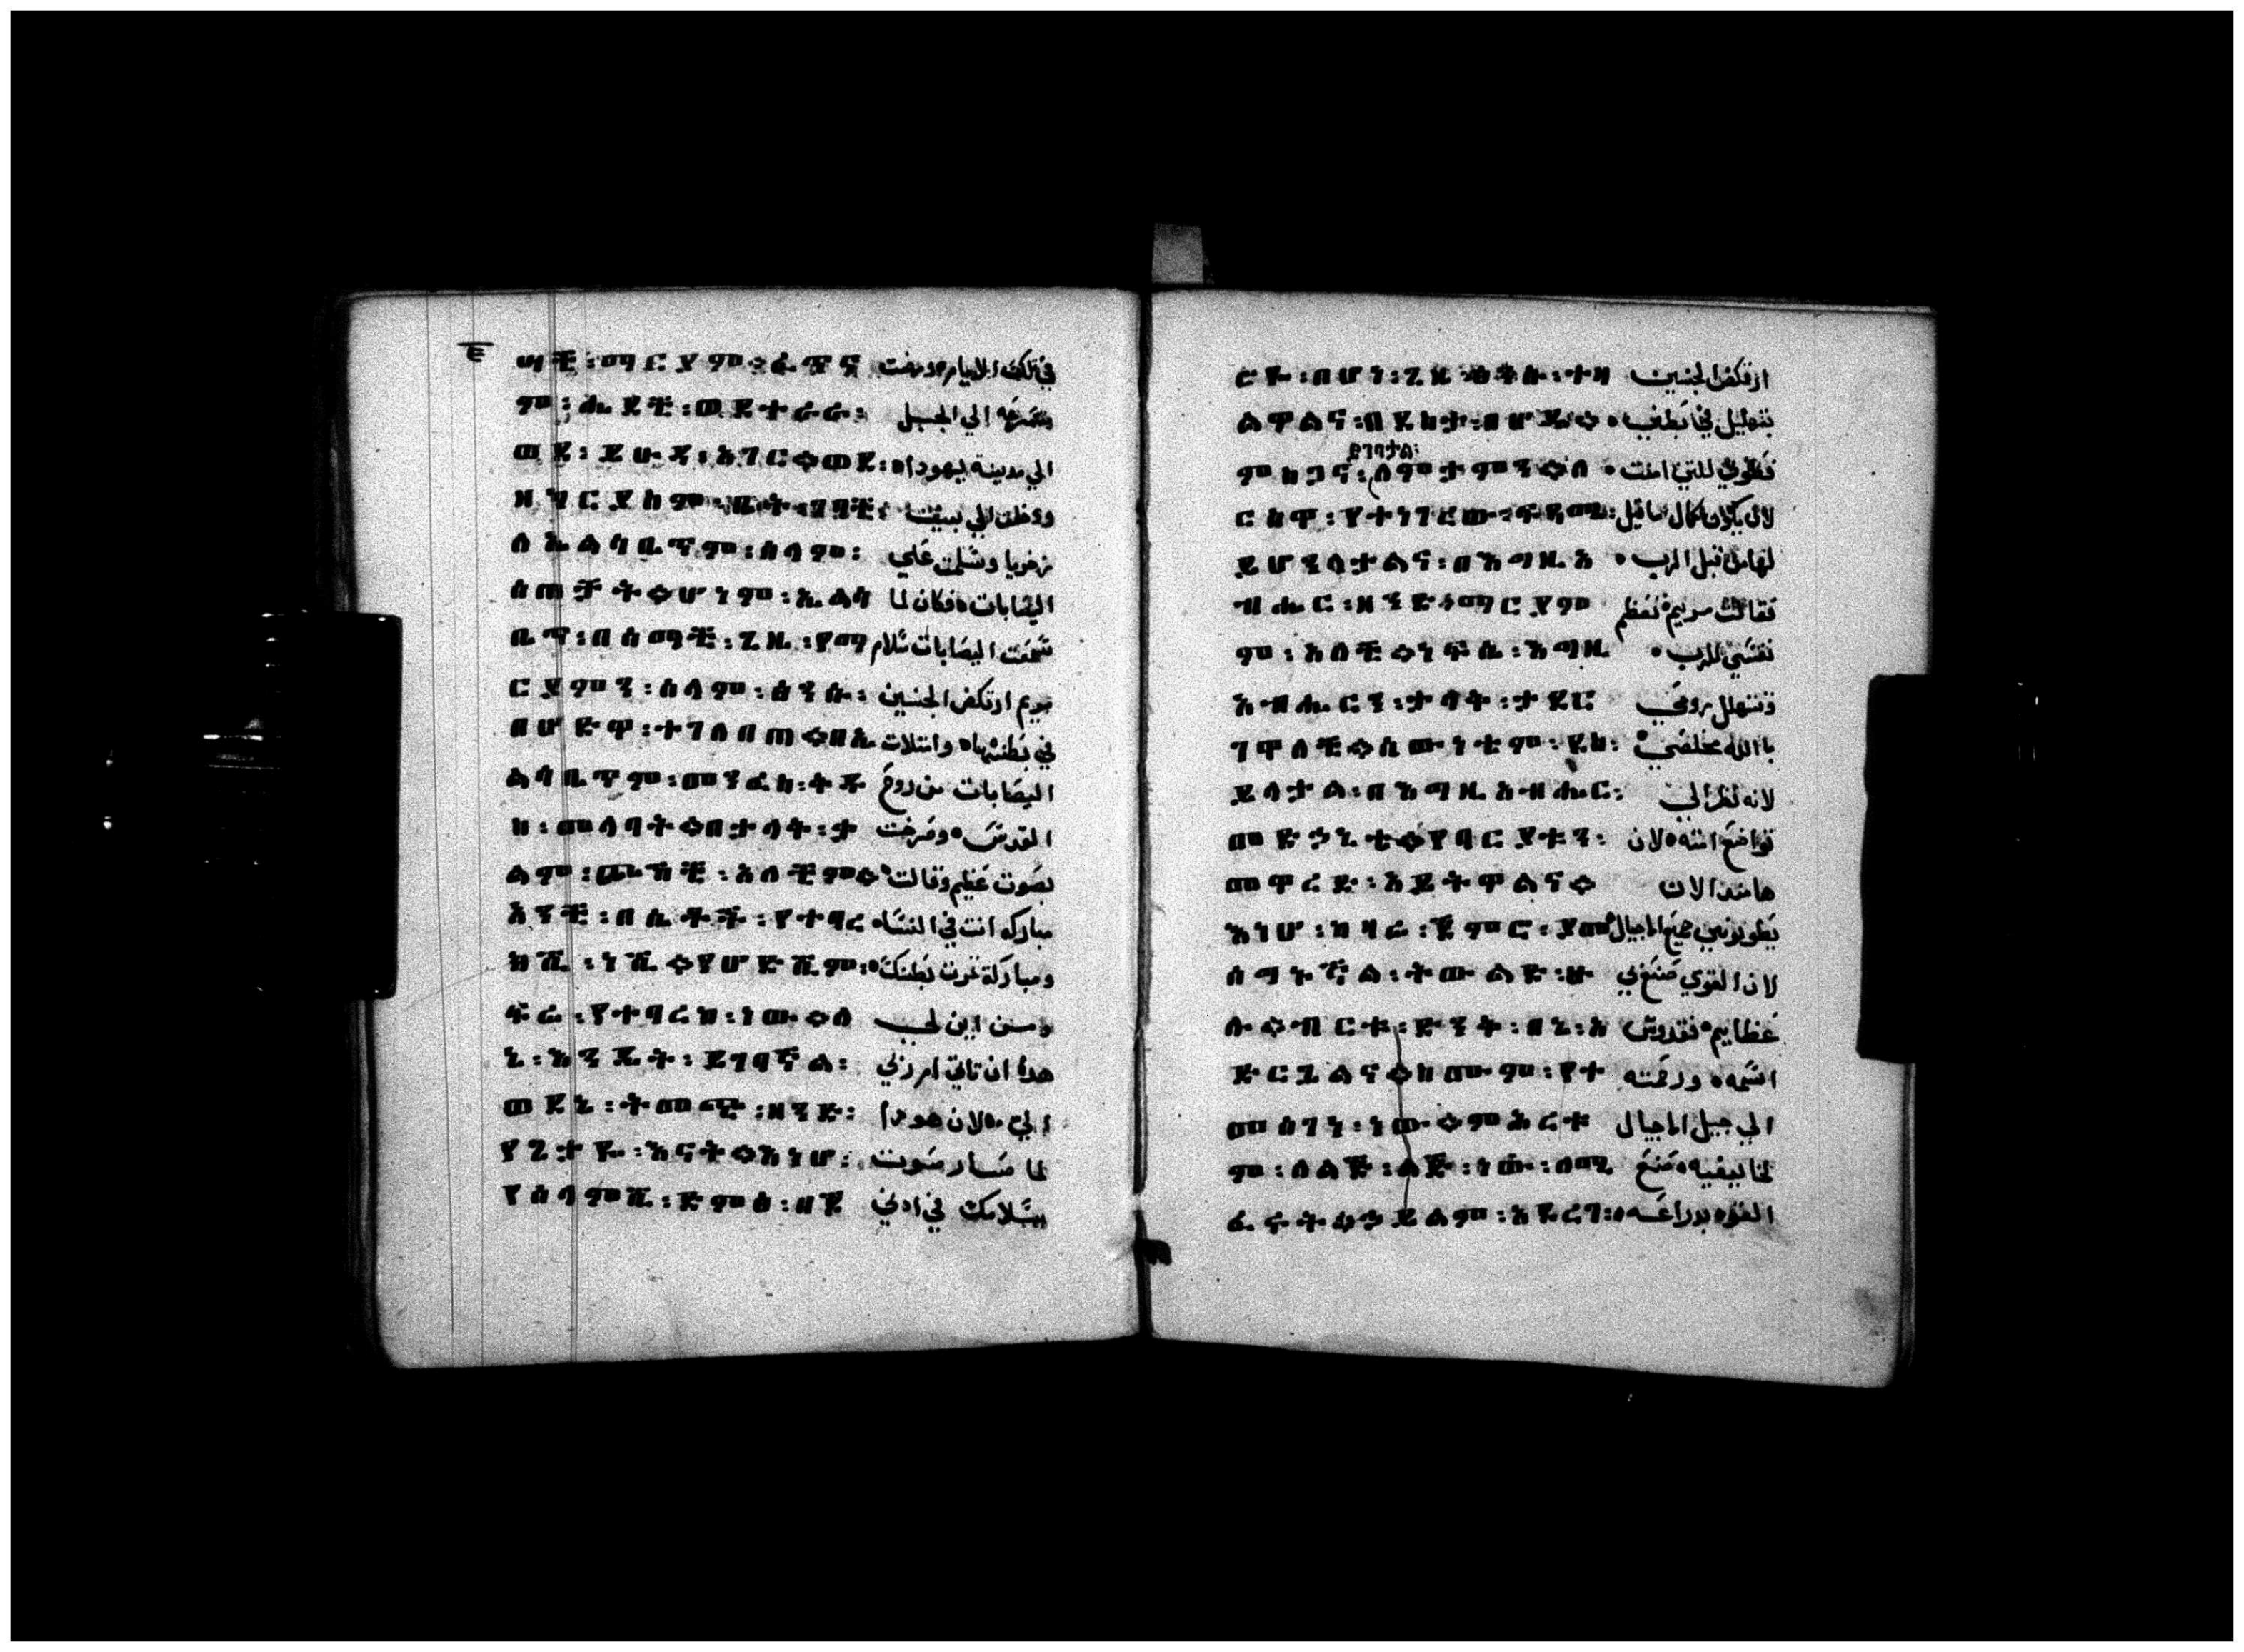 ሣች፡ማርያም።ፈጥና في تلك الايام ومضت
ም፡ሔደች፡ወደተራራ፡ مسرعه الي الجبل
ወደ፡ይሁዳ፡አገር።ወደ፡ الي مدينة ليهودا ه
ዘካርያስም፡ቤት፡ገባች፡ ودخلت الي بييت
ለኤልሳቤጥም፡ሰላም፡ زخريا وسلمت علي
ሰጠቻት።ሆነም፡ኤልሳ اليصابات ه فكان لما
ቤጥ፡በሰማች፡ጊዜ፡የማ سمعت اليصابات سلام
ርያምን፡ሰላም፡ፅንሱ፡ مريم ارتكض الجنين
በሆድዋ፡ተገለበጠ።በኤ في بطنها ه وامتلات
ልሳቤጥም፡መንፈስ፡ቅዱ اليصابات من روح
ስ፡መላባት።በታላቅ፡ቃ القدس ه وصرخت
ልም፡ጮኸች፡አለችም። بصوت عظيم وقالت ه
አንች፡በሴቶች፡የተባረ مباركه انت في النسا ه
ክሽ፡ነሽ።የሆድሽም፡ ومباركة ثمرت بطنك ه
ፍሬ፡የተባረከ፡ነው።ለ ومن اين لي
ኔ፡እንዴት፡ይገባኛል፡ هدا ان تاتي ام ربي
ወደኔ፡ትመጭ፡ዘንድ፡ الي ه لان هودا
የጌታዬ፡እናት።እነሆ፡ لما صار صوت
የሰላምሽ፡ድምፅ፡በጆ بسلامك في ادني
ሮዬ፡በሆነ፡ጊዜ፡ፅንሱ፡ተዘ ارتكض الجنين
ልዋልና፡በደስታ፡በሆዴ። بتهليل في بطني ه
ይገባታል፡
ምስጋና፡ለምታምን።ለ فطوبي للتي امنت ه
ርስዋ፡የተነገረው፡ፍጻሜ፡ لان كمال ما قيل
ይሆንላታልና፡በእግዚአ لها من قبل الرب ه
ብሔር፡ዘንድ።ማርያም فقالت مريم ه تعظم
ም፡አለች።ነፍሴ፡እግዚ نفسي للرب ه
አብሔርን፡ታላቅ፡ታደር وتتهلل روحي
ገዋለች።ሰውነቴም፡ደስ፡ باالله مخلصي ه
ይላታል፡በእግዚአብሔር፡ لانه نظر الي
መድኃኒቴ።የባርያቱን፡ تواضع امته ه لان
መዋረድ፡አይቶዋልና። ها مند الان
እነሆ፡ከዛሬ፡ጀምር፡ያመ يطوبونني جميع الاجيال ه
ሰግኑኛል፡ትውልድ፡ሁ لان القوي صنع بي
ሉ።ብርቱ፡ድንቅ፡በኔ፡አ عظايم ه فقدوس
ድርጓልና።ስሙም፡የተ اسمه ه ورحمته
መሰገነ፡ነው።ምሕረቱ الي جيل الاجيال
ም፡ለልጅ፡ልጅ፡ነው፡ለሚ لخاييفيه ه صنع
ፈሩት።ኃይልም፡አደረገ፡ القوه بدراعه ه